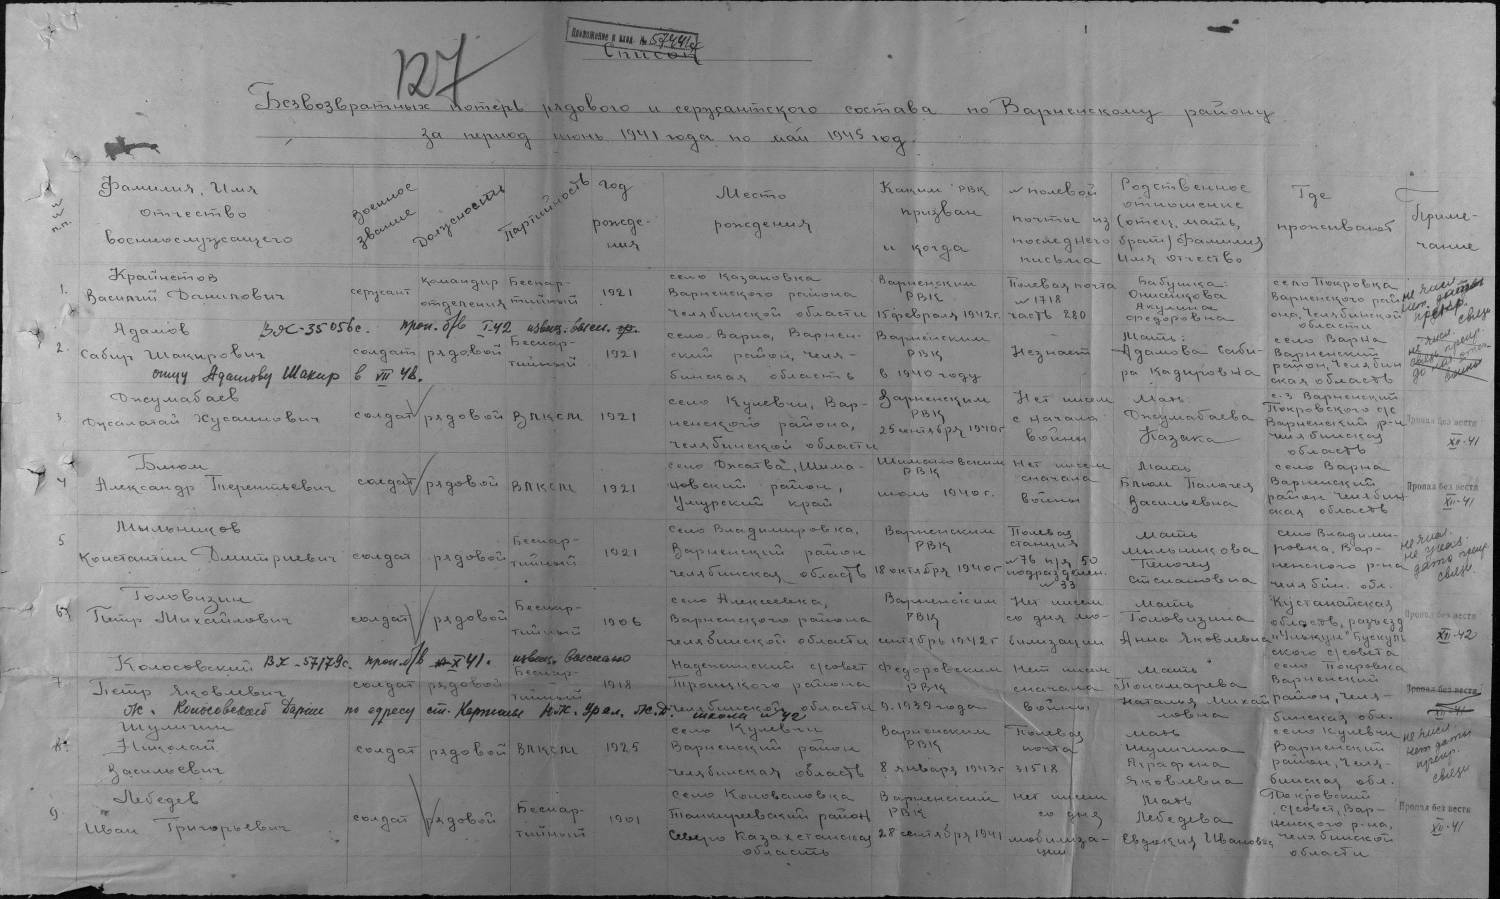 Приложение к вход. № 57441с
Список
127
Безвозвратных потерь рядового и сержантского состава по Варненскому району
за период июнь 1941 года по май 1945 год.
№ № п.п.
Фамилия, Имя отчество военнослужащего
Военное звание
Должность
Партийность
год рождения
Место рождения
Каким РВК призван и когда
№ полевой почты из последнего письма
Родственное отношение (отец, мать, брат) фамилия Имя отчество
Где проживают
Примечание
1.
Крайнетов
Василий Данилович
сержант
командир отделения
Беспартийный
1921
село Казановка
Варненского района
Челябинской области
Варненским
РВК
15 февраля 1942 г.
Полевая почта
№ 1718
часть 280
Бабушка:
Онисимова
Акулина
Федоровна
село Покровка
Варненского район, Челябинской
области
2.
Адамов
Сабир Шакирович
ВХ-35056с. проп. б/в I-42 извещ. высл.
отцу Адамову Шакир в VII 48.
солдат
рядовой
Беспартийный
1921
село Варна, Варненский район, Челябинская область
Варненским
РВК
в 1940 году
Незнает
Мать:
Адамова Сабира Кадировна
село Варна
Варненский
район, Челябинская область
3
Джумабаев
Джалатай Хусаинович
солдат
рядовой
ВЛКСМ
1921
село Кулевчи, Варненского района,
Челябинской области
Варненским
РВК
25 сентября 1940 г
Нет писем
с начала
войны
Мать
Джумабаева
Казака
с-з Варненский
Покровского с/с
Варненский р-н
Челябинская
область
Пропал без вести
XII-41
4
Блюм
Александр Терентьевич
солдат
рядовой
ВЛКСМ
1921
Шимановским
РВК
июль 1940 г.
Нет писем
сначала
войны
Мать
Блюм Палагея
Васильевна
село Варна
Варненский
район Челябинская область
Пропал без вести
XII-41
5
Мыльников
Константин Дмитриевич
солдат
рядовой
Беспартийный
1921
село Владимировка,
Варненский район
Челябинская область
Варненским
РВК
18 октября 1940 г
Полевая
станция
№ 76 п/я 50
подразделен.
№ 33
Мать
Мыльникова
Пелагея
Степановна
село Владимировка, Варненского р-на
Челябин. обл.
не числ.
не указ.
дата прекр.
связи
6
Головизин
Петр Михайлович
солдат
рядовой
Беспартийный
1906
село Алексеевка,
Варненского района
Челябинской области
Варненским
РВК
сентябрь 1942 г
Нет писем
со дня мобилизации
Мать
Головизина
Анна Яковлевна
Кустанайская
область, разъезд
Пропал без вести
XII-42
7
Колосовский
Петр Яковлевич
ВХ-57179с. проп. б/в XI 41. извещ. выслано
Ж. Колосовской Дарье по адресу ст. Карталы Юж. Урал. Ж.Д. школа № 42
солдат
рядовой
Беспартийный
1918
Троицкого района
Челябинской области
Федоровским
РВК
9. 1939 года
Нет писем
сначала
войны
Мать
Пономарева
Наталья Михайловна
село Покровка
Варненский
район, Челябинская обл.
Пропал без вести
XII-41
8.
Шуличин
Николай
Васильевич
солдат
рядовой
ВЛКСМ
1925
село Кулевчи
Варненский район
Челябинская область
Варненским
РВК
8 января 1943 г
Полевая
почта
31518
Мать
Аграфена
Яковлевна
село Кулевчи
Варненский
район, Челябинская обл.
не числ.
нет даты
прекр.
связи
9
Лебедев
Иван Григорьевич
солдат
рядовой
Беспартийный
1901
село Коновановка
Северо Казахстанская
область
Варненским
РВК
28 сентября 1941
Нет писем
со дня
мобилизации
Мать
Лебедева
Евдокия Ивановна
Покровский
с/совет, Варненского р-на,
Челябинской
области
Пропал без вести
XII-41